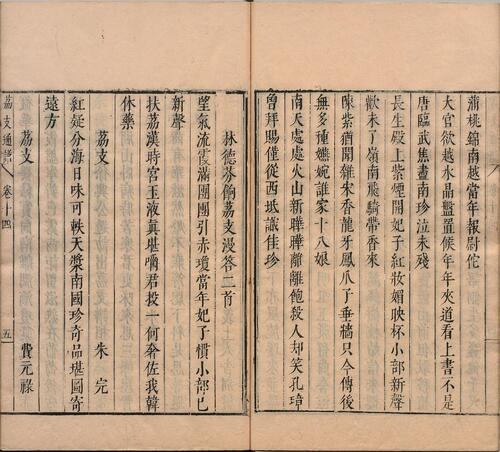 蒲桃錦南越當年報尉佗
大官欲越水晶盤置候年年夾道看上書不是
唐臨武焦畫南珍泣未殘
長生殿上紫煙開妃子紅妝媚映杯小部新聲
歡未了嶺南飛騎帶香來
陳紫猶聞雜宋香龍牙鳳爪子垂牆只今傳後
無多種嬿婉誰家十八娘
南天處處火山新曄曄離離飽殺人却笑孔璋
魯拜賜僅從西坻識佳珍
林德芬餉荔支漫答二首
望氣流霞滿團團引赤瓊當年妃子慣小部已
新聲
扶荔漢時宮玉液眞堪嚼君投一何奢佐我韓
休藥
荔支 朱完
紅綖分海日味可軼天槳南國珍奇品堪圖寄
遠方
荔支 費元祿
荔支通譜 卷十四 五